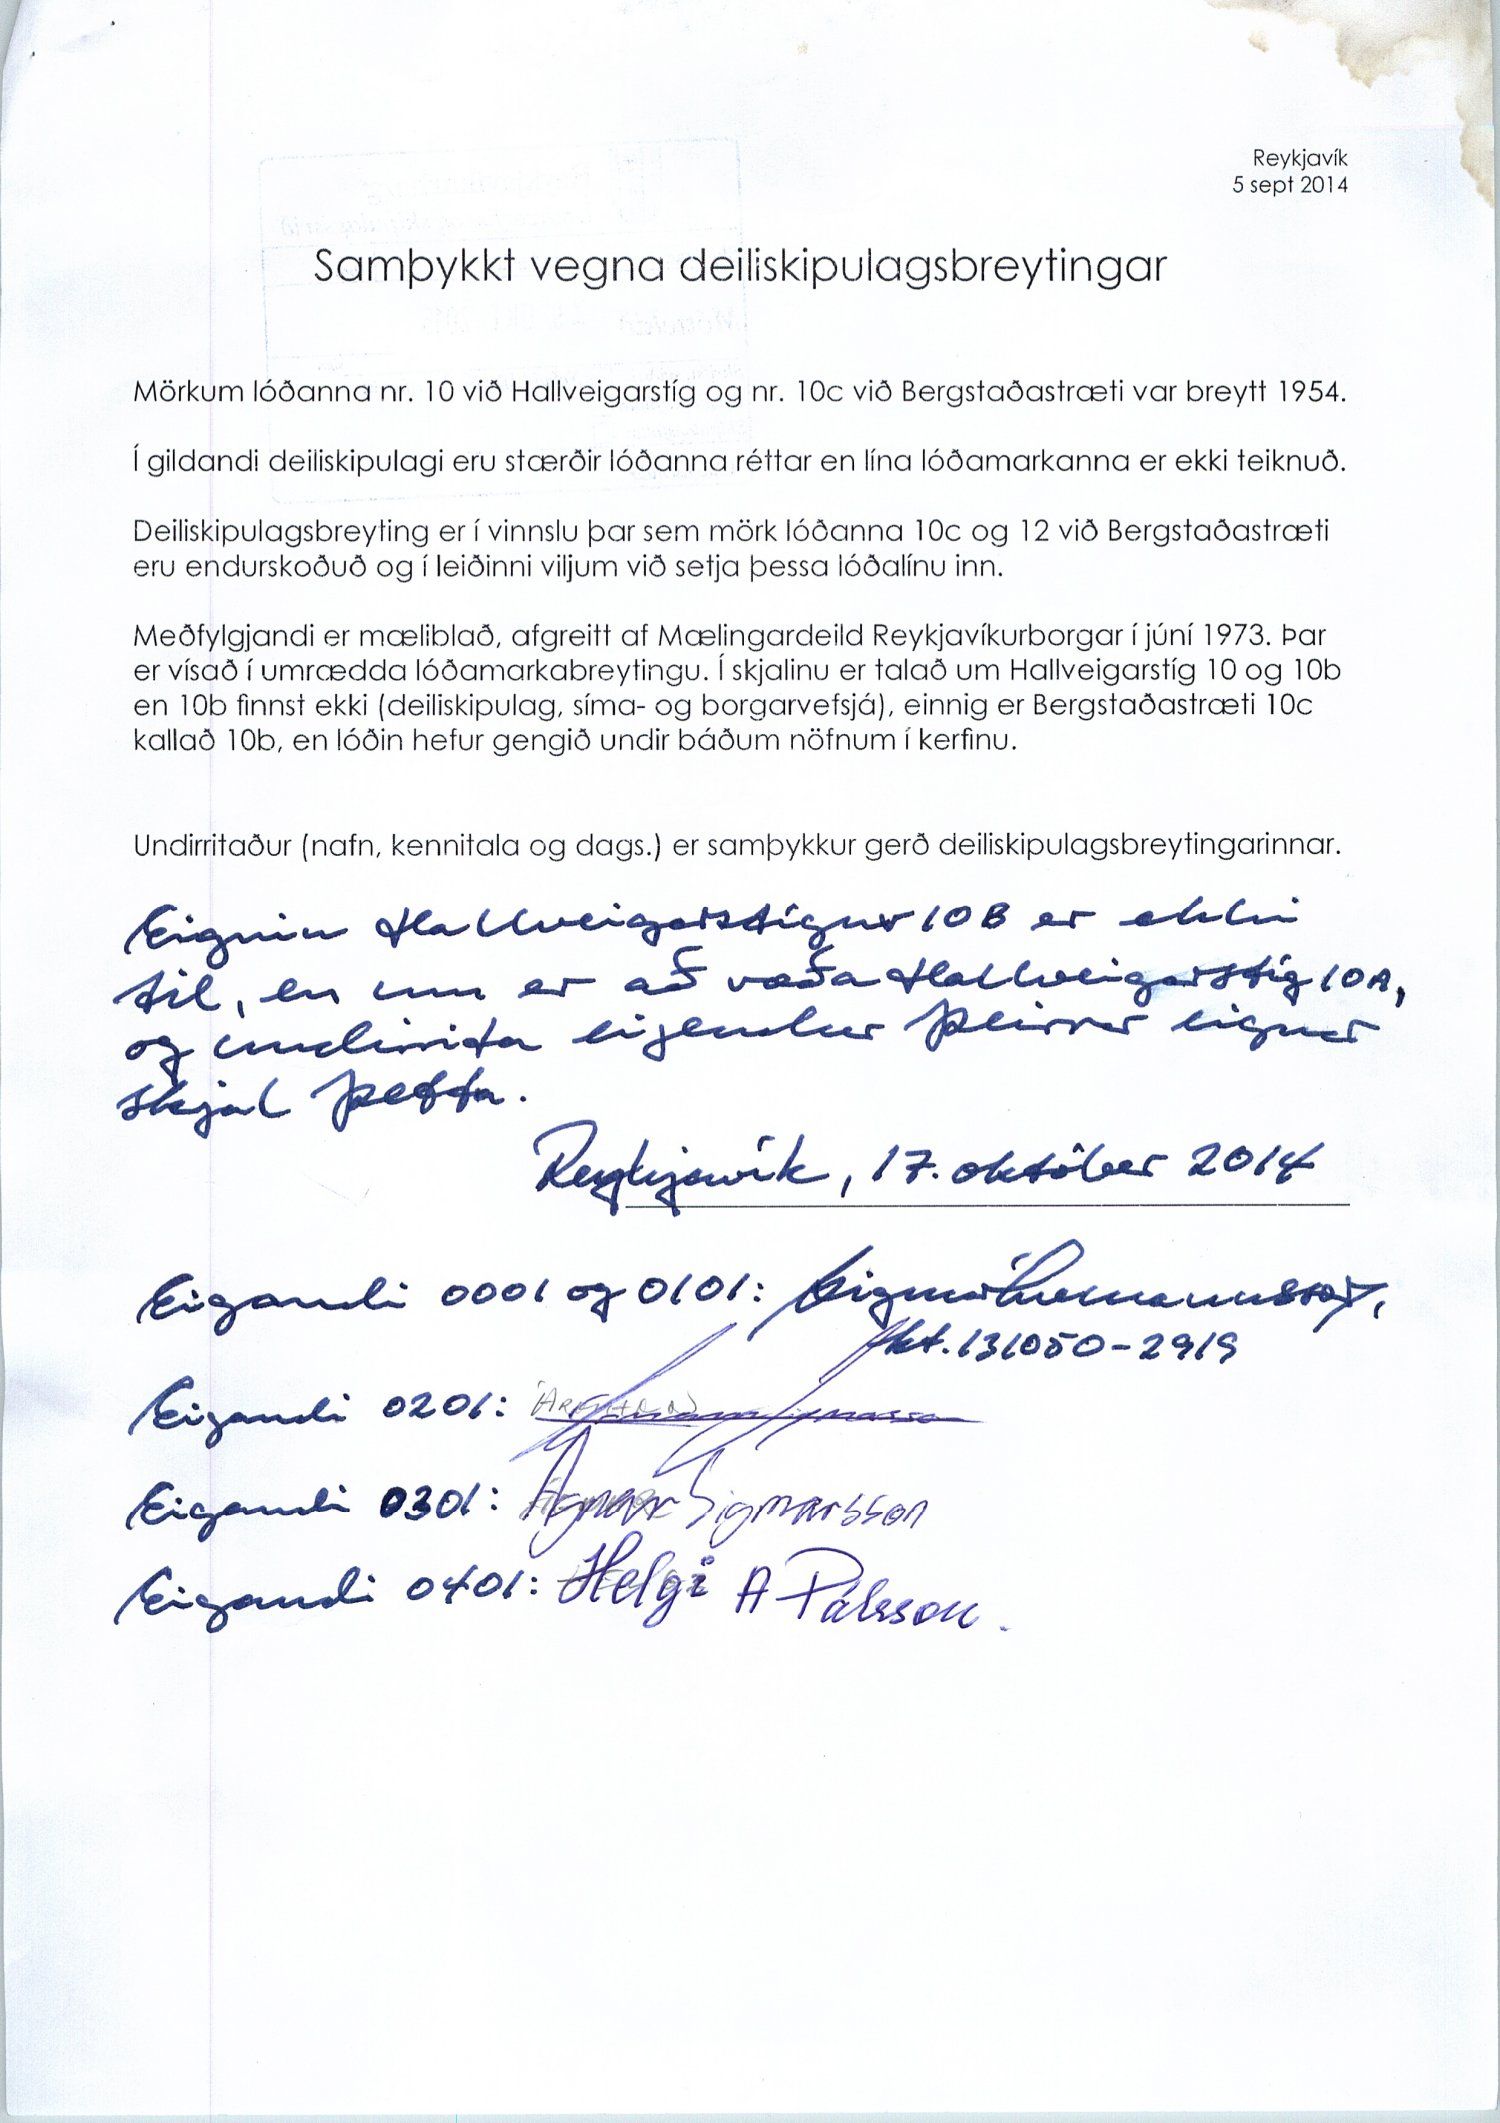 Reykjavík
5 sept 2014
Samþykkt vegna deiliskipulagsbreytingar
Mörkum lóðanna nr. 10 við Hallveigarstíg og nr. 10c við Bergstaðastræti var breytt 1954.
Í gildandi deiliskipulagi eru stærðir lóðanna réttar en lína lóðamarkanna er ekki teiknuð.
Deiliskipulagsbreyting er í vinnslu þar sem mörk lóðanna 10c og 12 við Bergstaðastræti
eru endurskoðuð og í leiðinni viljum við setja þessa lóðalínu inn.
Meðfylgjandi er mæliblað, afgreitt af Mælingardeild Reykjavíkurborgar í júní 1973. Þar
er vísað í umrædda lóðamarkabreytingu. Í skjalinu er talað um Hallveigarstíg 10 og 10b
en 10b finnst ekki (deiliskipulag, síma- og borgarvefsjá), einnig er Bergstaðastræti 10c
kallað 10b, en lóðin hefur gengið undir báðum nöfnum í kerfinu.
Undirritaður (nafn, kennitala og dags.) er samþykkur gerð deiliskipulagsbreytingarinnar.
Eignin Hallveigarstígur 10B er ekki
til, en um er að ræða Hallveigarstíg 10A,
og undirrita eigendur þeirrar eignar
skjal þetta.
Reykjavík, 17. október 2014
Eigandi 0001 og 0101:
kt. 131050-2919
Eigandi 0201:
Eigandi 0301: Agnar Sigmarsson
Eigandi 0401: Helgi A Pálsson.